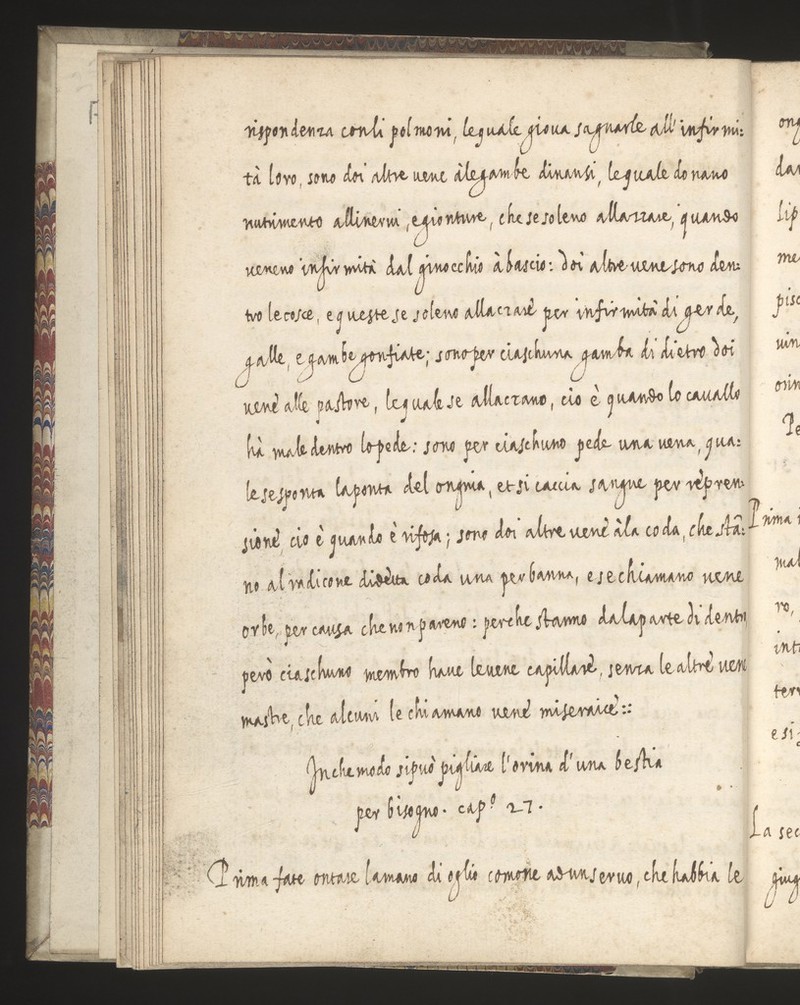 rispondenza conli polmoni, lequale gioua sagnarle all'infirmi:
tà loro, sono doi altre uene àlegambe dinansi, lequale donano
nutrimento allinerui, egionture, che sesoleno allazzare, quando
ueneno infirmità dal ginocchio à bascio: doi altre uene sono den:
tro lecosce, equeste se soleno allaczare per infirmità di gerde,
galle, egambe gonfiate; sono per ciaschuna gamba di dietro doi
uene alle pastore, lequale se allaczano, cio è quando lo cauallo
hà male dentro lopede: sono per ciaschuno pede una uena, qua:
le sesponta laponta del ongnia, et si caccia sangue per repren:
sione, cio è quando è rifosa; sono doi altre uene àla coda, che stā:
no al radicone coda una per banna, e se chiamano uene
orbe, per causa che non pareno: perche stanno dalaparte di dentro
però ciaschuno membro haue leuene capillare, senza le altre uene
mastre, che alcuni le chiamano uene miseraice::
Inchemodo sipuò pigliare l'orina d'una bestia
per bisogno. cap.º 27.
Prima fate ontare lamano di oglio comone ad un seruo, che habbia le
ong
dar
lip
me
pisc
uin
orin
Pe
Prima i
mal
ro,
int
terr
e si
La sec
giug